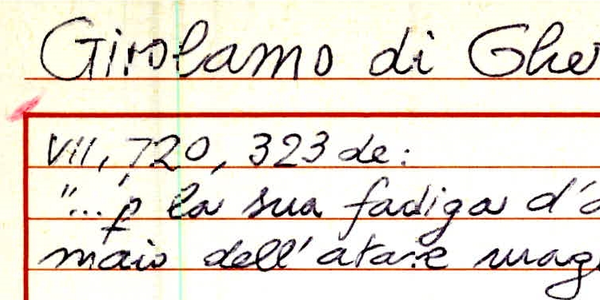 Girolamo di Ghe
VII, 720, 323 de:
"... p la sua fadiga d'a
maio dell'atare mag